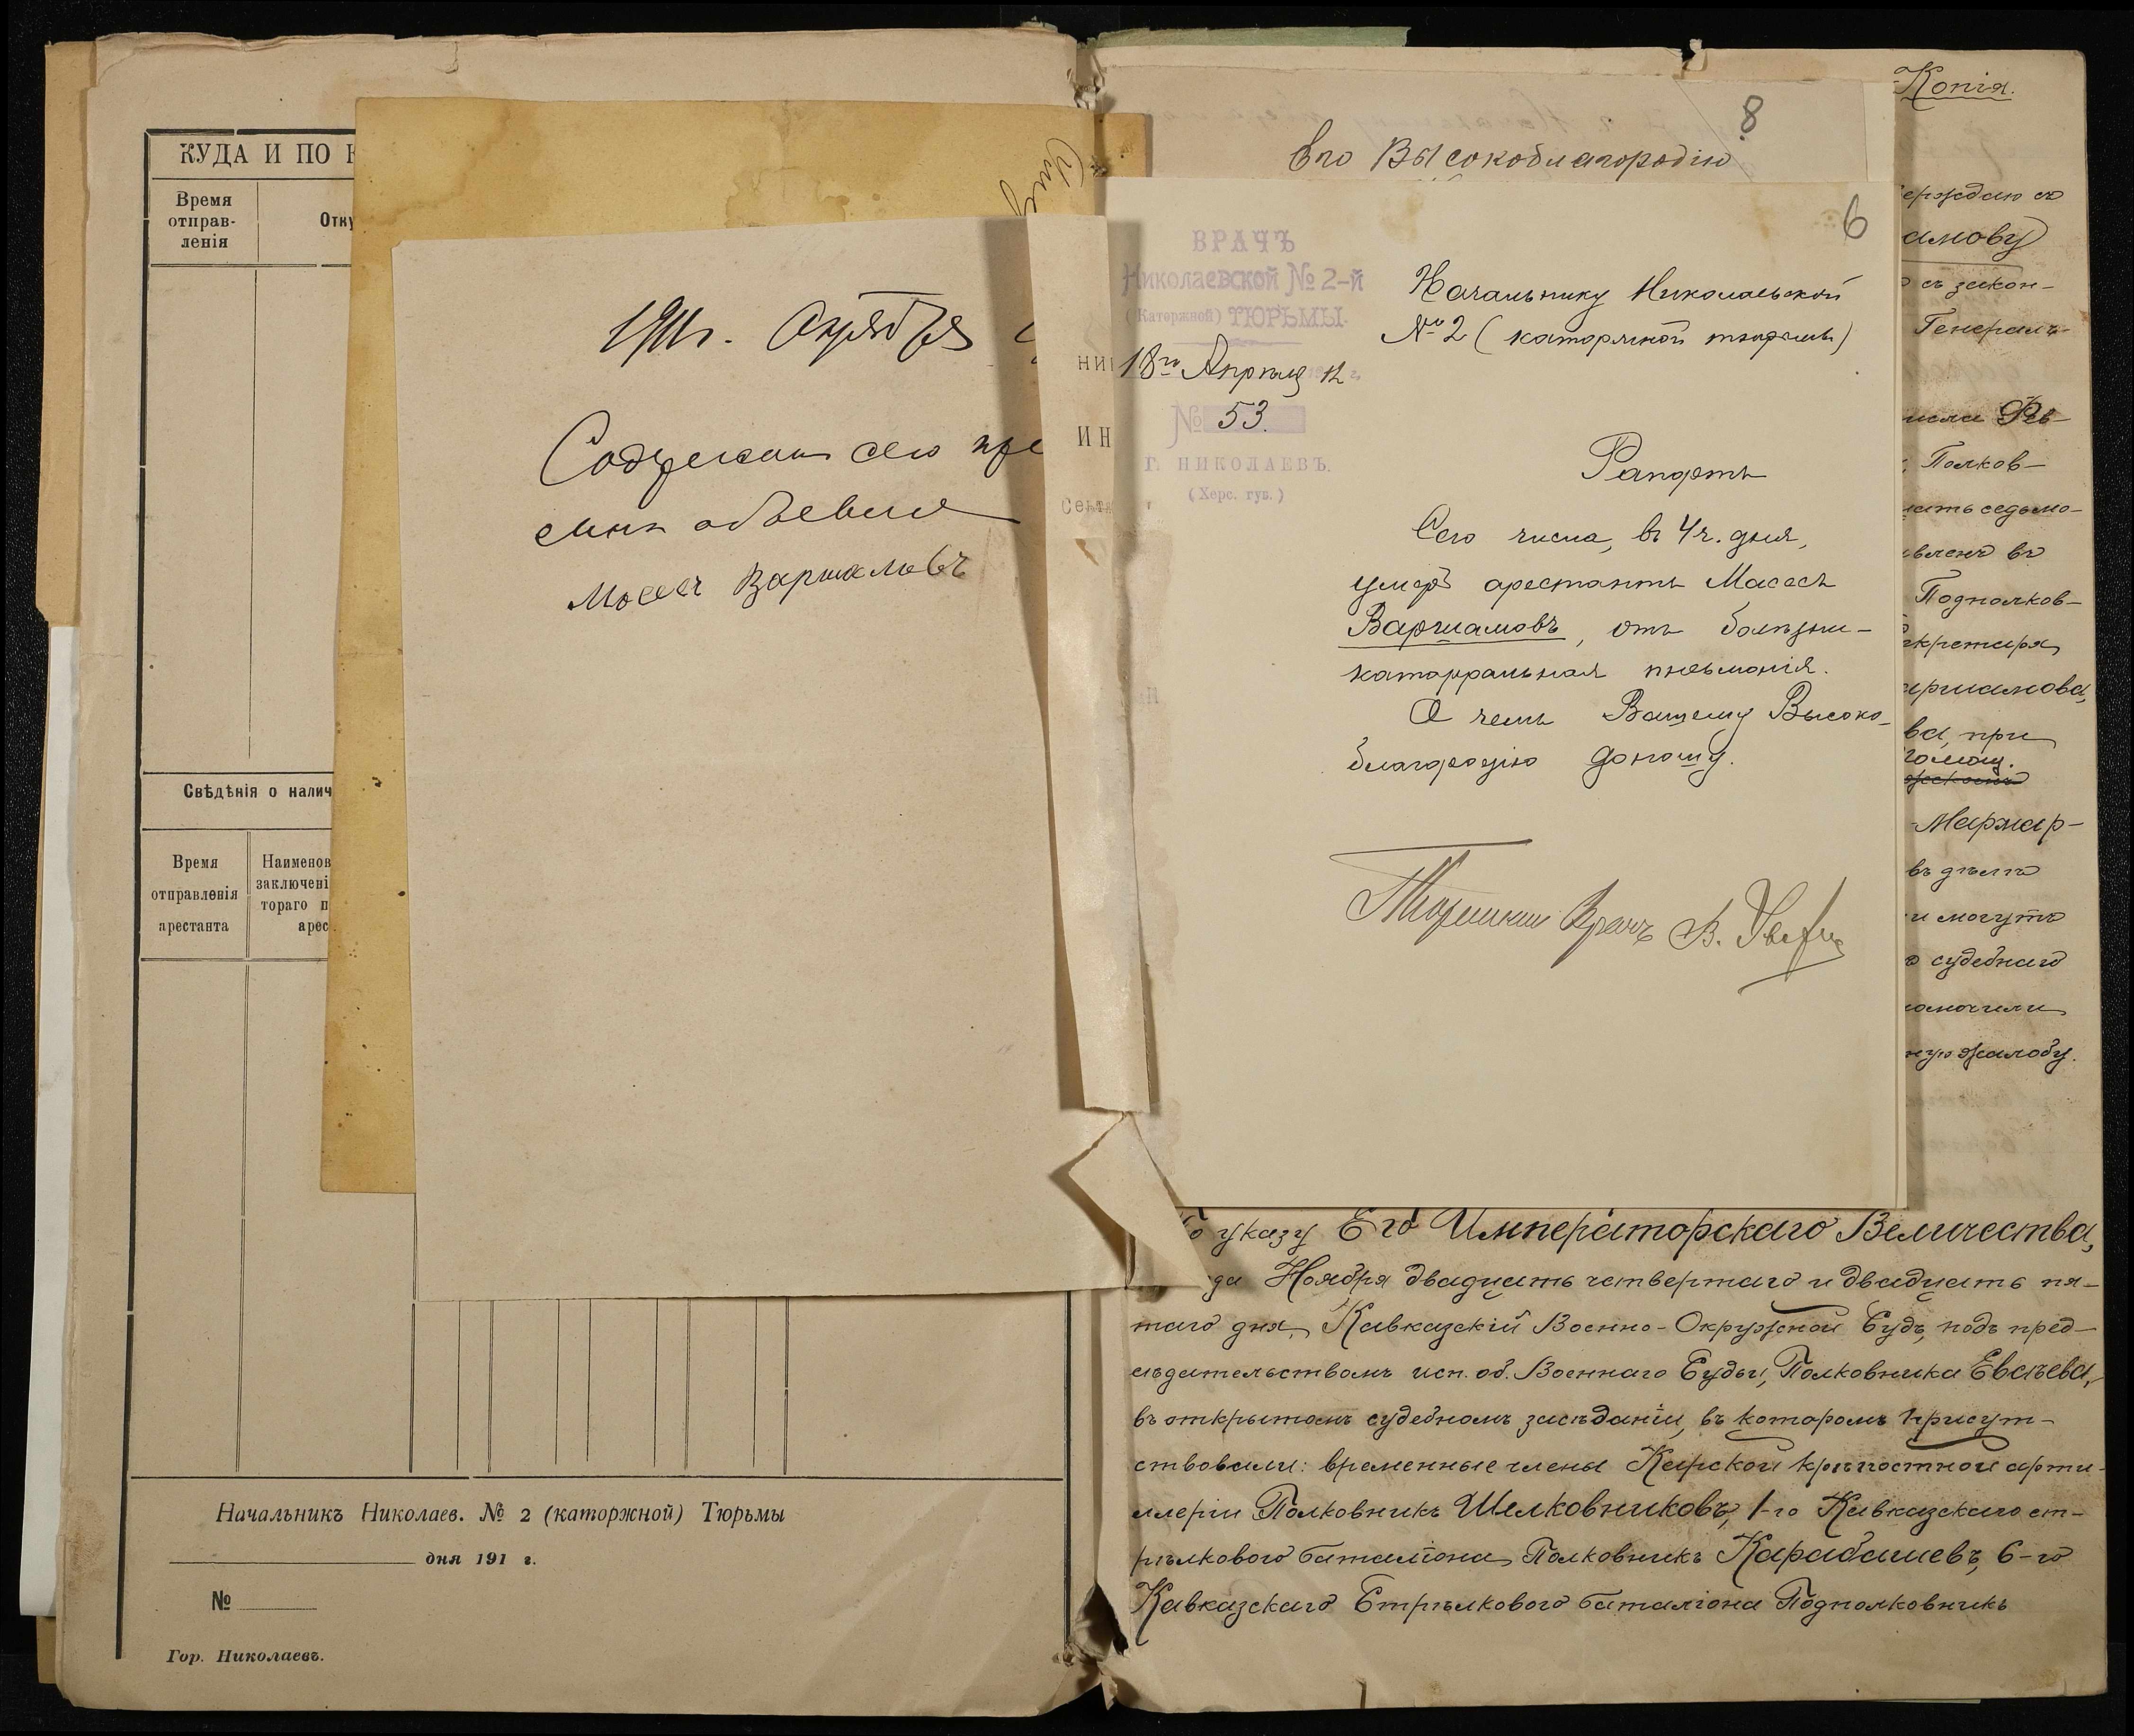 КУДА И ПО
Время
отправ-
ленія
Отку
Свѣдѣнія о налич
Время
отправленія
арестанта
Наименов
заключені
тораго п
арес
Начальникъ Николаев. № 2 (каторжной) Тюрьмы
дня 191 г.
№
Гор. Николаевъ.
1911 г. Октября
Содержаніе сего пре
мнѣ объявлено
Мосесъ Варшамовъ
НИ
ИН
Сент
8
Его Высокоблагородію
6
ВРАЧЪ
Николаевской № 2-й
(Каторжной) ТЮРЬМЫ.
18го Апрѣля 12 г.
№ 53.
Г. НИКОЛАЕВЪ.
(Херс. губ.)
Начальнику Николаевской
№ 2 (каторжной тюрьмы)
Рапортъ
Сего числа, въ 4 ч. дня,
умеръ арестантъ Масесъ
Варшамовъ, отъ болѣзни-
катарральная пневмонія.
О чемъ Вашему Высоко-
благородію доношу.
Тюремный Врачъ В.
Копія.
ерждаю съ
амову
съ закон-
Генералъ-
Фев-
Полков-
ать седьмо-
влено въ
Подполков-
екретаря
аршамова,
ва, при
помощ.
Мармар-
въ дѣлѣ
и могутъ
судебнаго
ную жалобу.
По указу Его Императорскаго Величества,
да Ноября двадцать четвертаго и двадцать пя-
таго дня, Кавказскій Военно-Окружной Судъ, подъ пред-
сѣдательствомъ исп. об. Военнаго Судьи, Полковника Евсѣева,
въ открытомъ судебномъ засѣданіи, въ которомъ присут-
ствовали: временные члены Карской крѣпостной арти-
ллеріи Полковникъ Шелковниковъ, 1-го Кавказскаго ст-
рѣлковаго баталіона Полковникъ Карабашевъ, 6-го
Кавказскаго Стрѣлковаго баталіона Подполковникъ